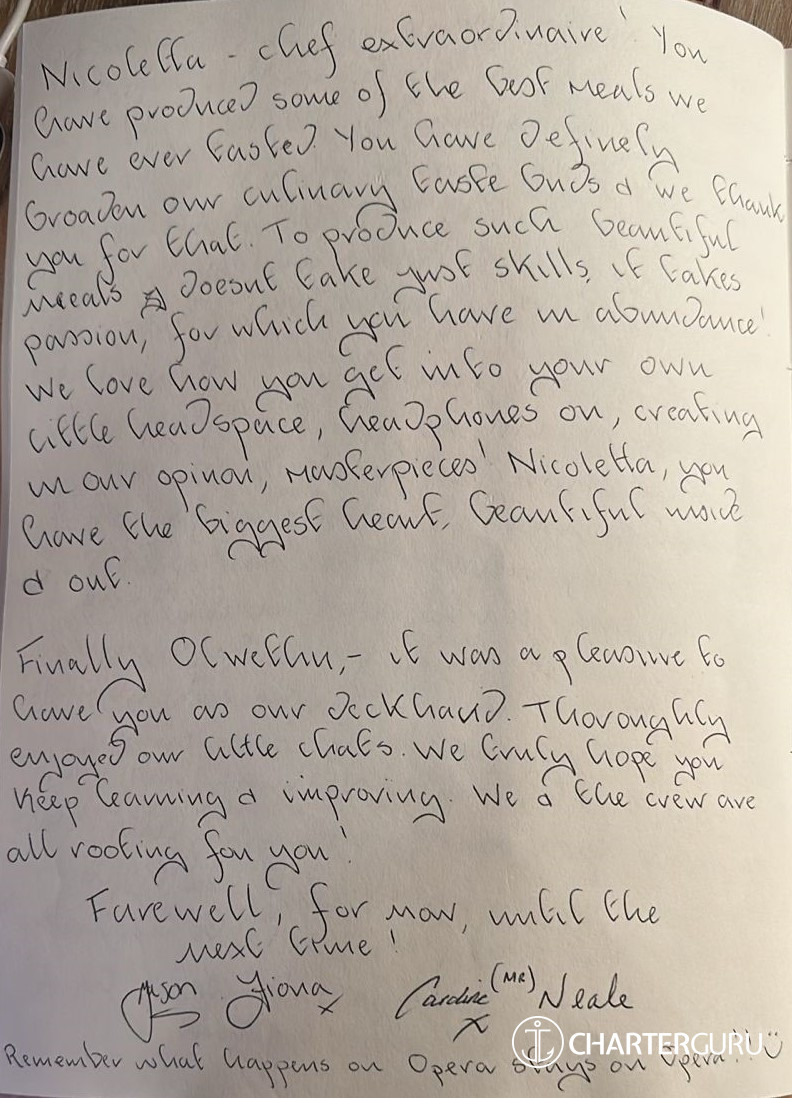 Nicoletta - chef extraordinaire! You
have produced some of the best meals we
have ever tasted. You have definely
broaden our culinary taste buds & we thank
you for that. To produce such beautiful
meals doesnt take just skills, it takes
passion, for which you have in abundance!
We love how you get into your own
little headspace, headphones on, creating
in our opinon, masterpieces! Nicoletta, you
have the biggest heart, beautiful inside
& out.
Finally Olwethu, - it was a pleasure to
have you as our deckhand. Thoroughly
enjoyed our little chats. We truly hope you
keep learning & improving. We & the crew are
all rooting for you!
Farewell, for now, until the
next time!
Jason Fiona x Caroline x (MR) Neale
Remember what happens on Opera stays on Opera!!
CHARTERGURU